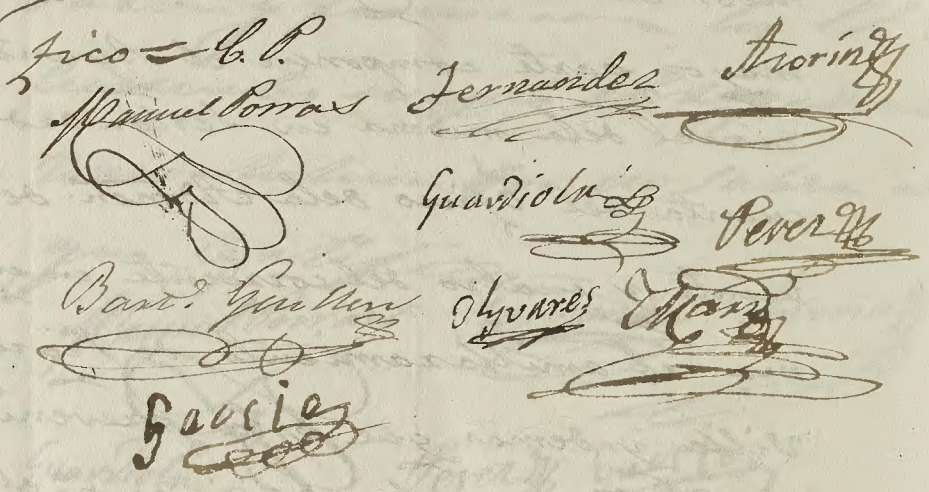 fico = C. P.
Manuel Porras
Fernandez
Azorin
Guardiola
Perez
Bart.e Guillen
Olyvares
Mari
Garcia